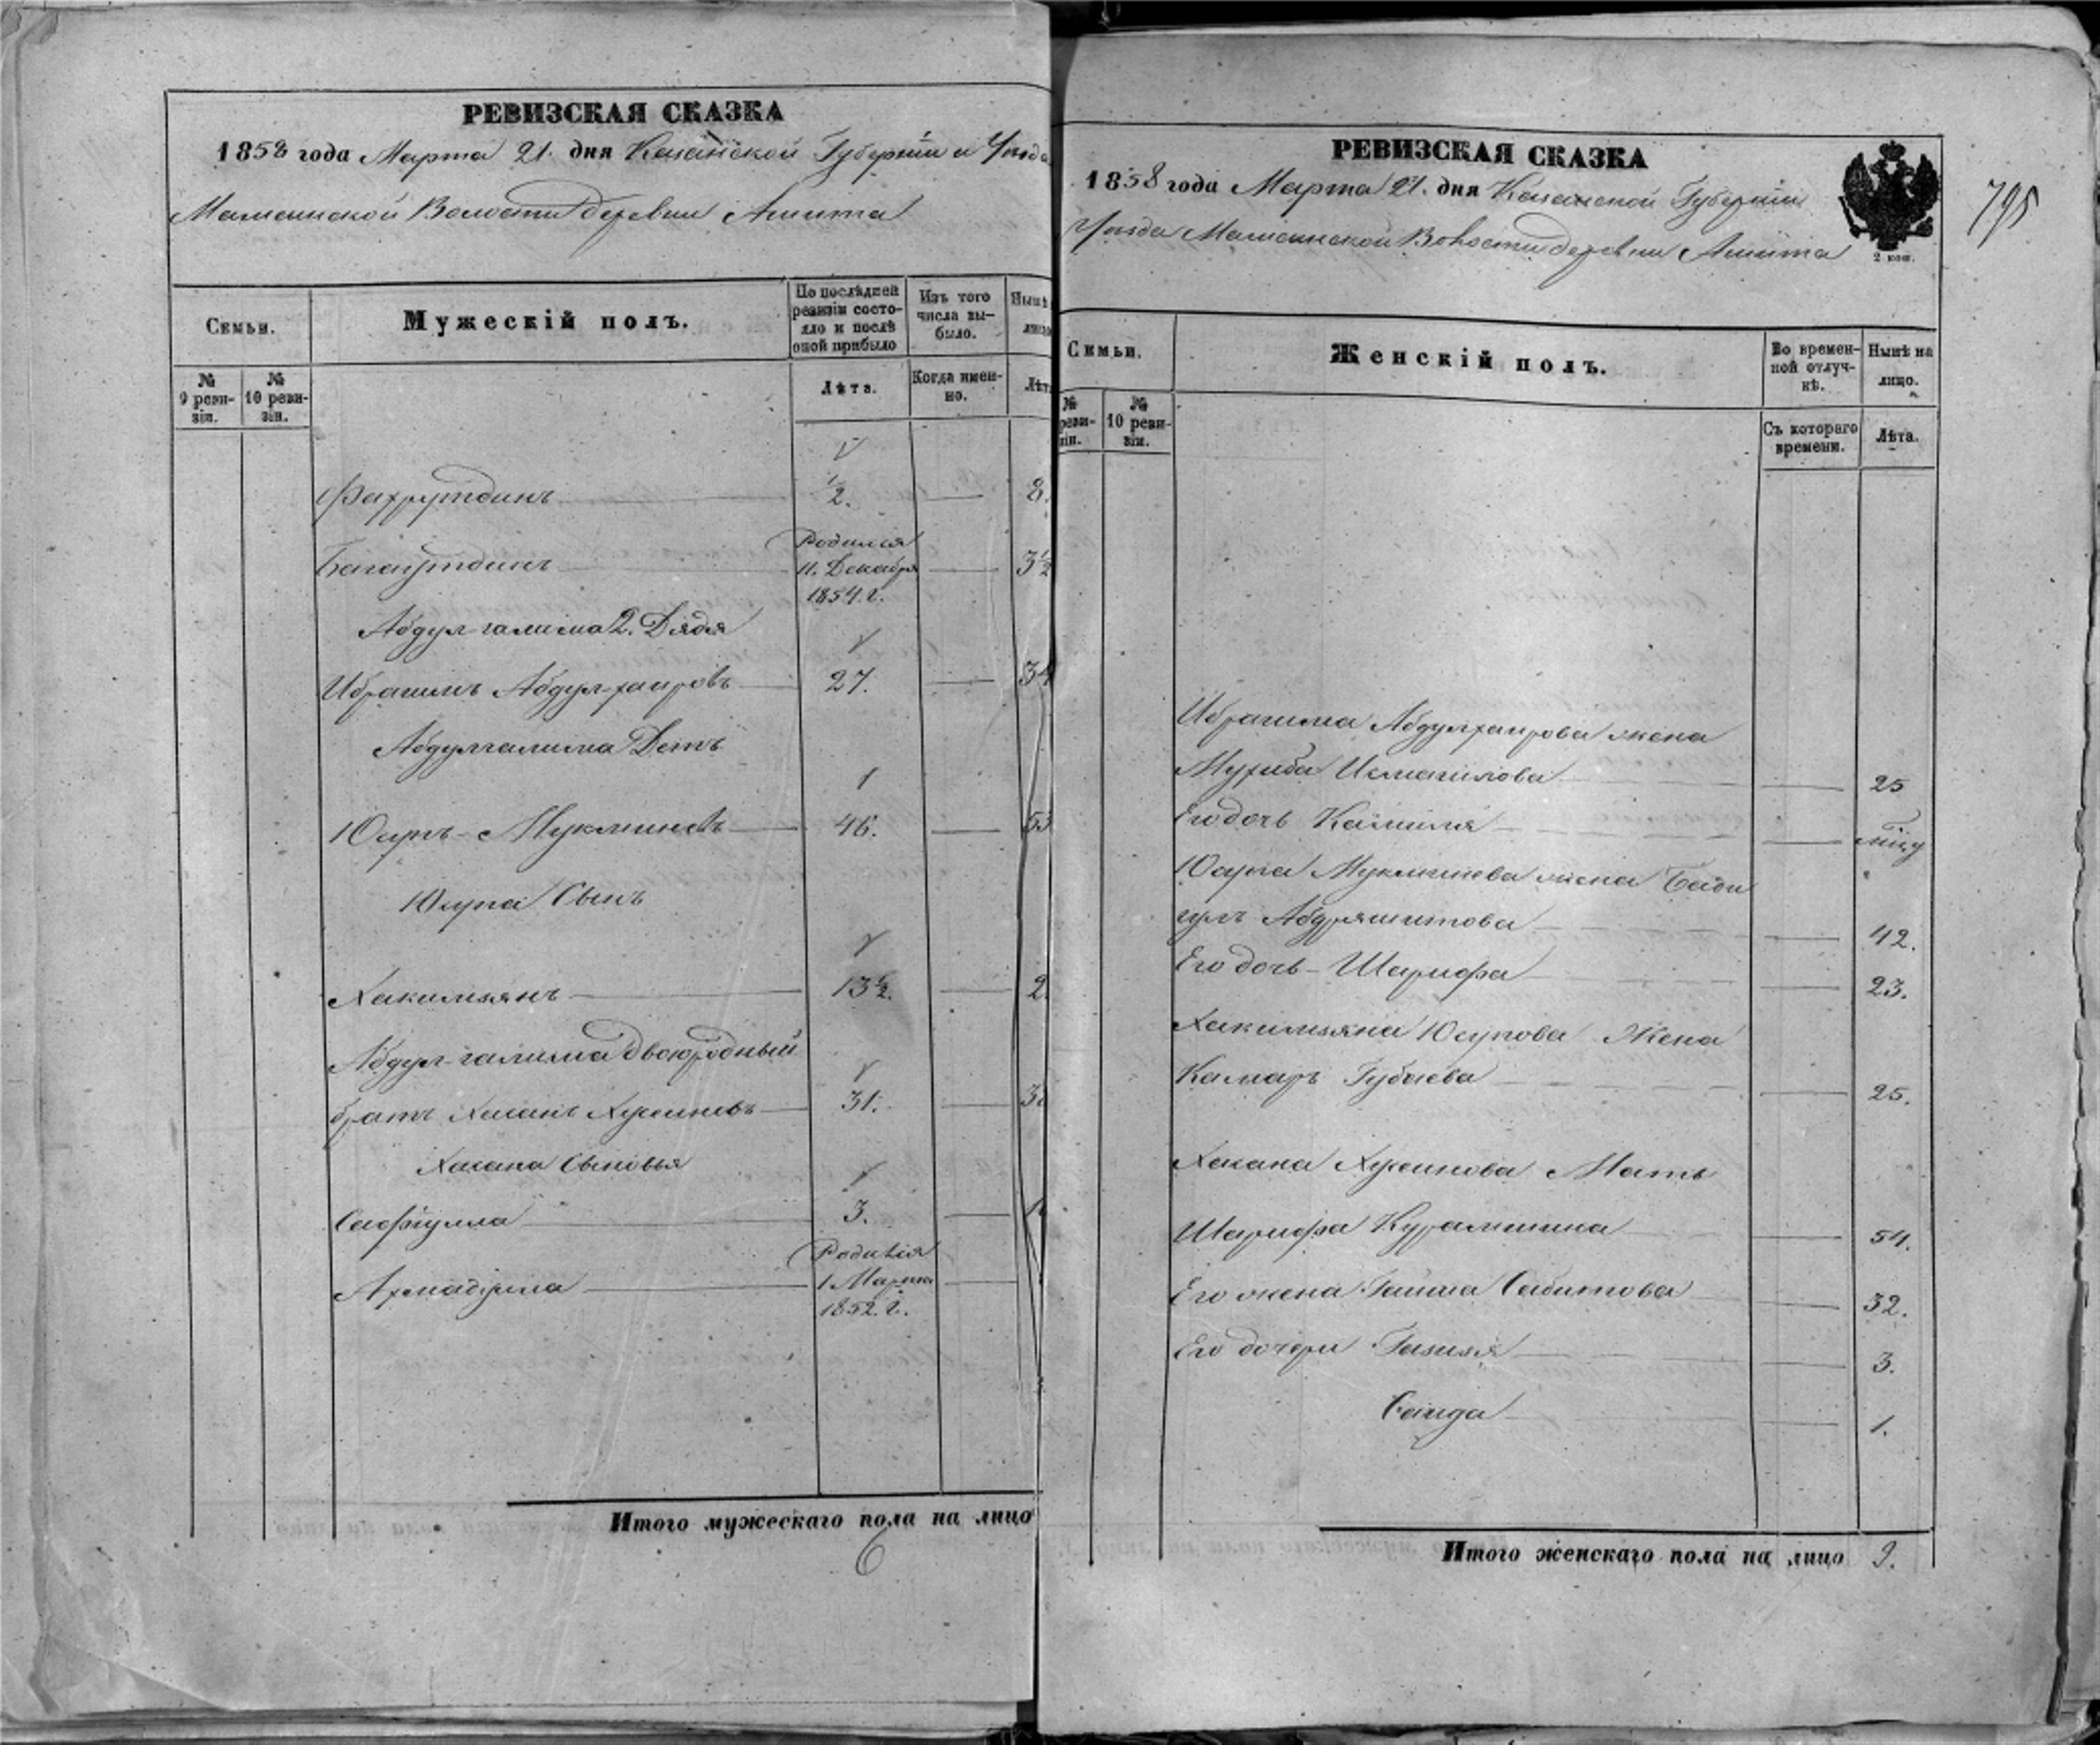 РЕВИЗСКАЯ СКАЗКА
1858 года Марта 21. дня Казанской Губернии и Уѣзда
Мамсинской Волости деревни Ашита
Семьи.
Мужескій полъ.
По послѣдней ревизіи состояло и послѣ оной прибыло
Изъ того числа выбыло.
Нынѣ
№ 9 ревизіи.
№ 10 ревизіи.
Лѣта.
Когда именно.
Лѣт
Фахрутдинъ 1/2. 8.
Родился
Багаутдинъ 11. Декабря 3 1/2
1854. г.
Абдул-галима 2. Дядя
Ибрагимъ Абдул-хаировъ 27. 34
Абдулгалима Детъ
Юсупъ Мукминевъ 46. 53
Юсупа Сынъ
Хакимзянъ 13 1/2. 2
Абдул-галима двоюродный
братъ Хасанъ Хусаиновъ 31. 3
Хасана Сыновья
Сафіулла 3. 1
Родился
Ахмадулла 1 Марта
1852. г.
Итого мужескаго пола на лицо
6
РЕВИЗСКАЯ СКАЗКА
1858 года Марта 21. дня Казанской Губерніи
Уѣзда Мамсинской Волости деревни Ашита
2 коп.
795
Семьи.
Женскій полъ.
Во временной отлучкѣ.
Нынѣ на лицо.
№ реви- зіи.
№ 10 ревизіи.
Съ котораго времени.
Лѣта.
Ибрагима Абдулхаирова жена
Исмагилова 25
Его дочь Камиля
Юсупа Мукминева жена Биби
Абдряшитова 42.
Его дочь Шарифа 23.
Хакимзяна Юсупова Жена
Камаръ Губаева 25.
Хасана Хусаинова Мать
Шарифа Курамшина 54.
Его жена Гайша Сабитова 32.
Его дочери Газизя 3.
Саида 1.
Итого женскаго пола на лицо 9.